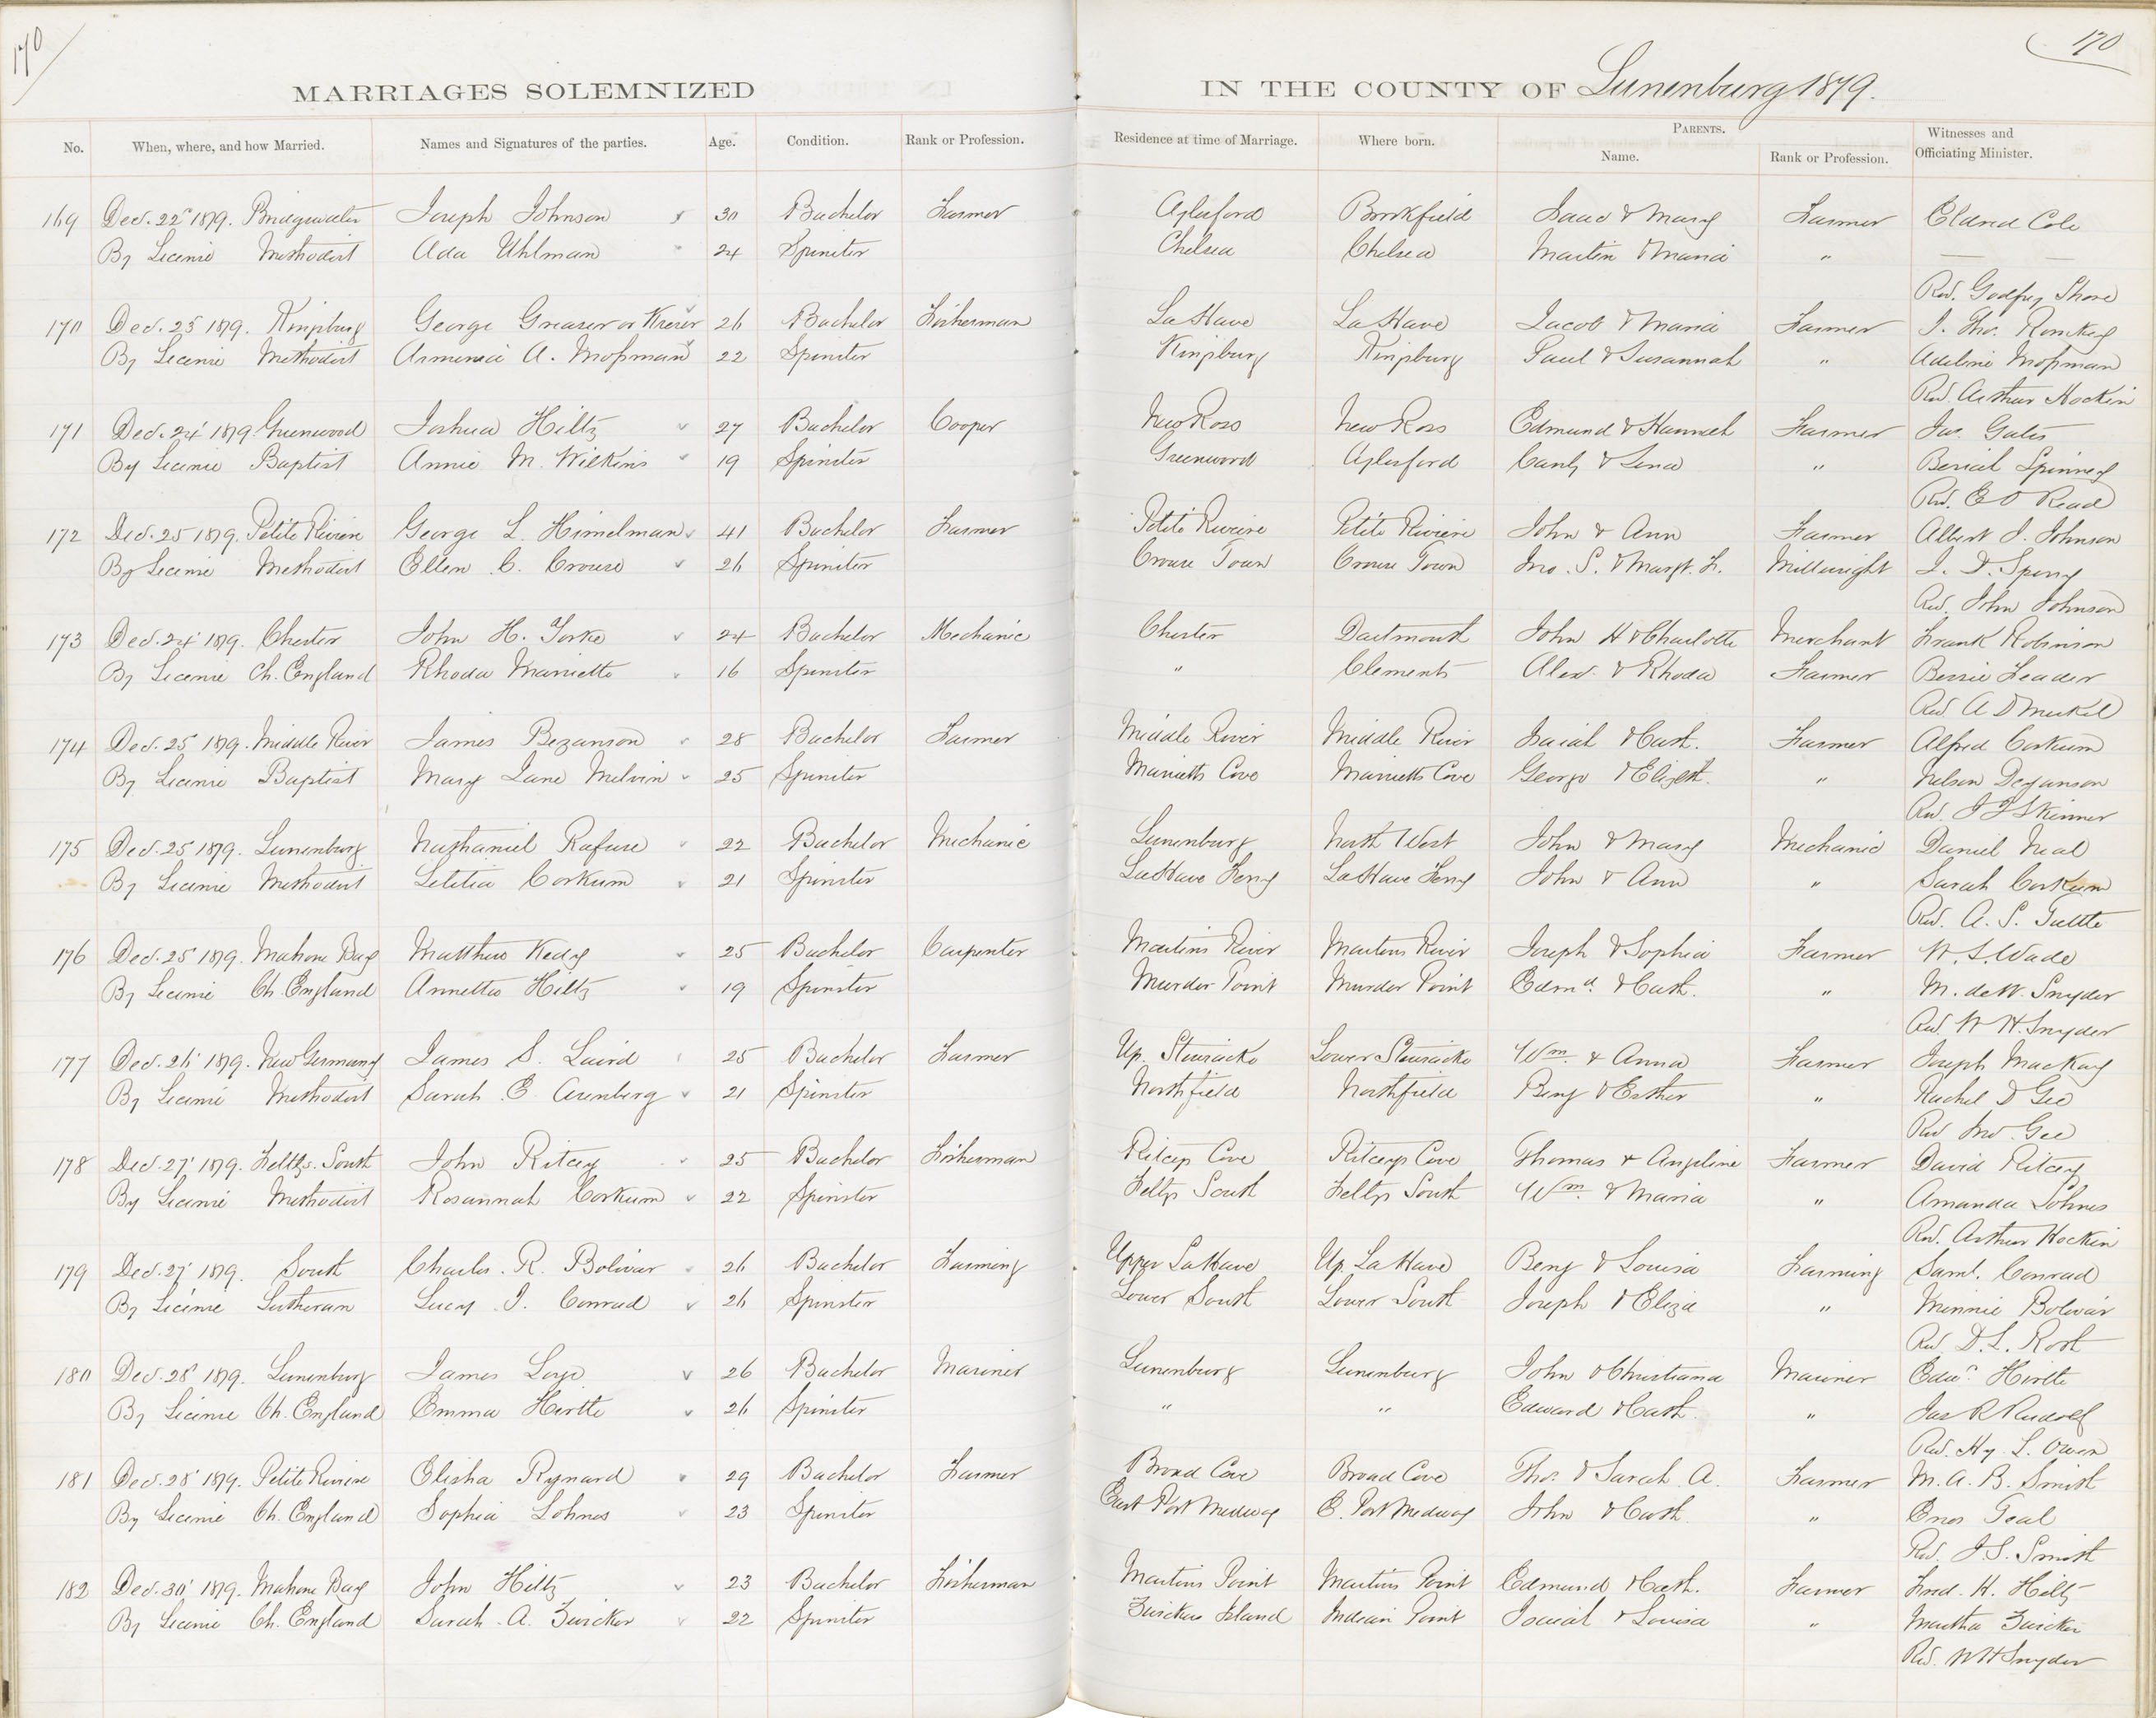 170
170
MARRIAGES SOLEMNIZED IN THE COUNTY OF Lunenburg 1879.
No. When, where, and how Married. Names and Signatures of the parties. Age. Condition. Rank or Profession. Residence at time of Marriage. Where born. PARENTS. Name. Rank or Profession. Witnesses and Officiating Minister.
169 Dec. 22 1879. Bridgewater Joseph Johnson 30 Bachelor Farmer Aylesford Brookfield Isaac & Mary Farmer Eldred Cole
By License Methodist Ada Uhlman 24 Spinster Chelsea Chelsea Martin & Maria "
Rev. Godfrey Shore
170 Dec. 23 1879. Kingsburg George Greaser or Kreser 26 Bachelor Fisherman LaHave LaHave Jacob & Maria Farmer J. Tho. Romkey
By License Methodist Armenia A. Moßman 22 Spinster Kingsburg Kingsburg Paul & Susannah " Adeline Moßman
Rev. Arthur Hockin
171 Dec. 24 1879. Greenwood Joshua Hiltz 27 Bachelor Cooper New Ross New Ross Edmund & Hannah Farmer Jas. Gates
By License Baptist Annie M. Wilkins 19 Spinster Greenwood Aylesford & Lena " Beriah Spinney
Rev. E O Read
172 Dec. 25 1879. Petite Riviere George L. Himelman 41 Bachelor Farmer Petite Riviere Petite Riviere John & Ann Farmer Albert J. Johnson
By License Methodist Ellen C. Crouse 26 Spinster Crouse Town Crouse Town Jno. S. & Margt. L. Millwright J. D. Sperry
Rev. John Johnson
173 Dec. 24 1879. Chester John H. Yorke 24 Bachelor Mechanic Chester Dartmouth John H & Charlotte Merchant Frank Robinson
By License Ch. England Rhoda Marriette 16 Spinster " Clements Alex. & Rhoda Farmer Bessie Leader
Rev. A D Merkel
174 Dec. 25 1879. Middle River James Bezanson 28 Bachelor Farmer Middle River Middle River Isaiah & Cath. Farmer Alfred Corkum
By License Baptist Mary Jane Melvin 25 Spinster Marriotts Cove Marriotts Cove George & Elizbth. " Nelson Dezanson
Rev. I J Skinner
175 Dec. 25 1879. Lunenburg Nathaniel Rafuse 22 Bachelor Mechanic Lunenburg North West John & Mary Mechanic Daniel Neal
By License Methodist Letitia Corkum 21 Spinster LaHave Ferry LaHave Ferry John & Ann " Sarah Corkum
Rev. A. S. Tuttle
176 Dec. 25 1879. Mahone Bay Matthew Kedy 25 Bachelor Carpenter Martins River Martins River Joseph & Sophia Farmer W. S. Wade
By License Ch. England Annette Hiltz 19 Spinster Murder Point Murder Point Edmd. & Cath. " M. deW. Snyder
Rev. W H. Snyder
177 Dec. 26 1879. New Germany James S. Laird 25 Bachelor Farmer Up. Stewiacke Lower Stewiacke Wm. & Anna Farmer Joseph MacKay
By License Methodist Sarah E Arenberg 21 Spinster Northfield Northfield Benj & Esther " Rachel D Gee
Rev Jno. Gee
178 Dec. 27 1879. Feltzs. South John Ritcey 25 Bachelor Fisherman Ritceys Cove Ritceys Cove Thomas & Angeline Farmer David Ritcey
By License Methodist Rosannah Corkum 22 Spinster Feltzs South Feltzs South Wm. & Maria " Amanda Lohnes
Rev. Arthur Hockin
179 Dec. 27 1879. South Charles. R. Bolivar 26 Bachelor Farming Upper LaHave Up. LaHave Benj & Louisa Farming Saml. Conrad
By License Lutheran Lucy J. Conrad 26 Spinster Lower South Lower South Joseph & Eliza " Minnie Bolivar
Rev D. L. Roth
180 Dec. 28 1879. Lunenburg James Loye 26 Bachelor Mariner Lunenburg Lunenburg John & Christiana Mariner Edwd. Hirtle
By License Ch. England Emma Hirtle 26 Spinster " " Edward & Cath. " Jas R Rudolf
Rev. Hy. L. Owen
181 Dec. 28 1879. Petite Riviere Elisha Rynard 29 Bachelor Farmer Broad Cove Broad Cove Tho. & Sarah A. Farmer M. A. B. Smith
By License Ch. England Sophia Lohnes 23 Spinster East Port Medway E. Port Medway John & Cath. " Enos Teal
Rev. J. S. Smith
182 Dec. 30 1879. Mahone Bay John Hiltz 23 Bachelor Fisherman Martins Point Martins Point Edmund & Cath. Farmer Fred. H. Hiltz
By License Ch. England Sarah. A. Zwicker 22 Spinster Zwickers Island Indian Point Isaiah & Louisa " Martha Zwicker
Rev. W H Snyder